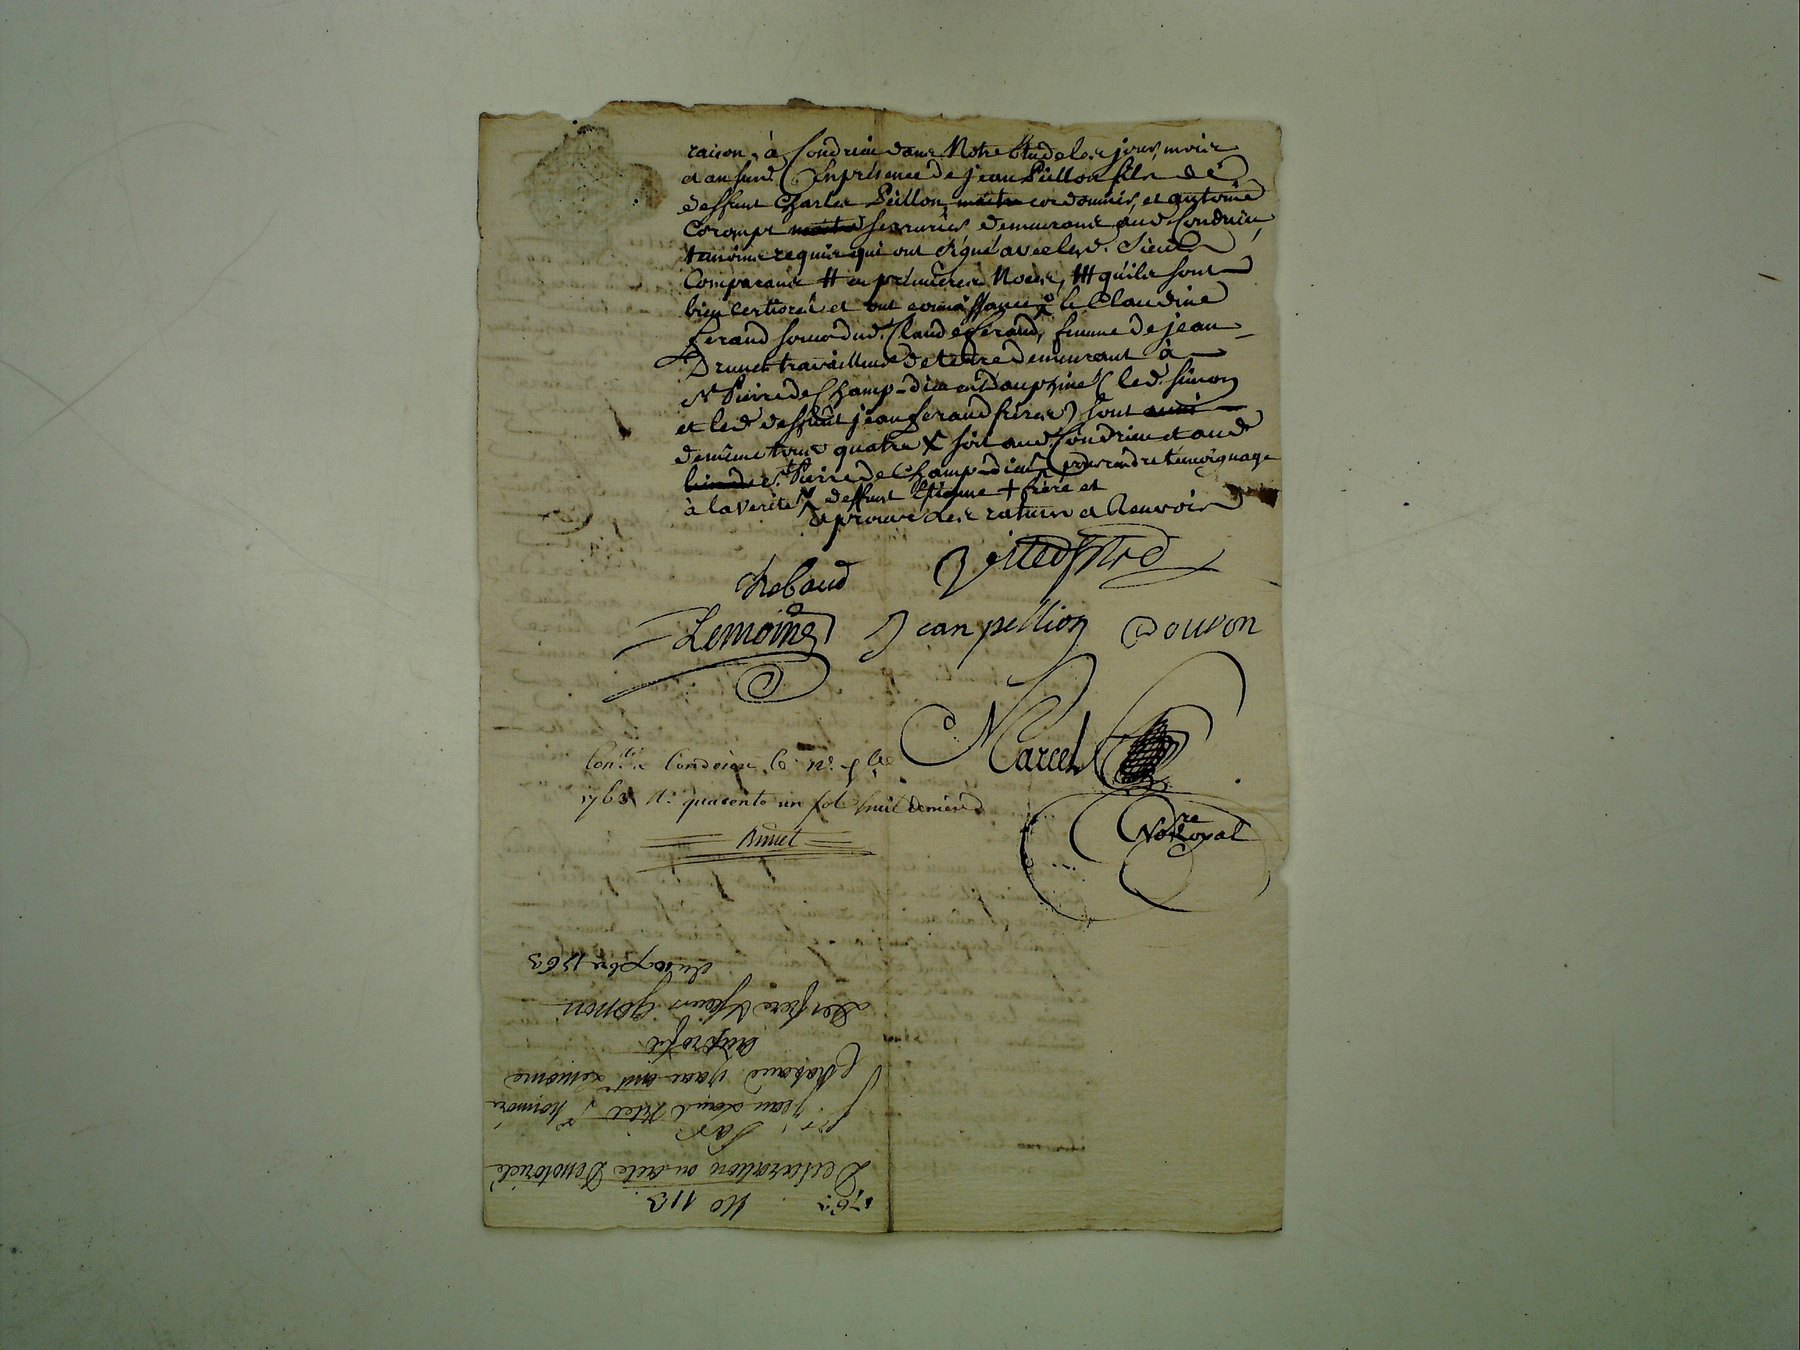 raison, à Condrieu dans Notre Etude les jour, mois
et an susd. En présence de jean Peillon fils de
deffunt Charles Peillon, maitre cordonnier, et antoine
Corompt maitre serrurier demeurant aud. Condrieu,
temoins requis qui ont signé avec lesd. Sieurs
Comparans # en premieres Noces, ### qu'ils sont
bien certiorés et ont connoissance & le Claudine
ferand soeur dud. Claude ferand, femme de jean
Drunet travailleur de terre demeurant à
St Pierre de Champ-dieu en Dauphiné (led. Simon
et led deffunt jean ferand freres) sont aussi
de même tous quatre X soit aud. Condrieu et aud
lieu de St. Pierre de Champ-dieu pour rendre temoignage
à la verité deffunt Etienne + frere et
aprouvé les ratures et Renvois
Rebaud
Lemoine Jean pellion
Marcel
Nore Royal
Conlé. à Condrieu le
1763 R. quarente un sol huit deniers
1763 No 113
Declaration ou acte De notoriété
Par
au profit
Des frere & soeurs
1763